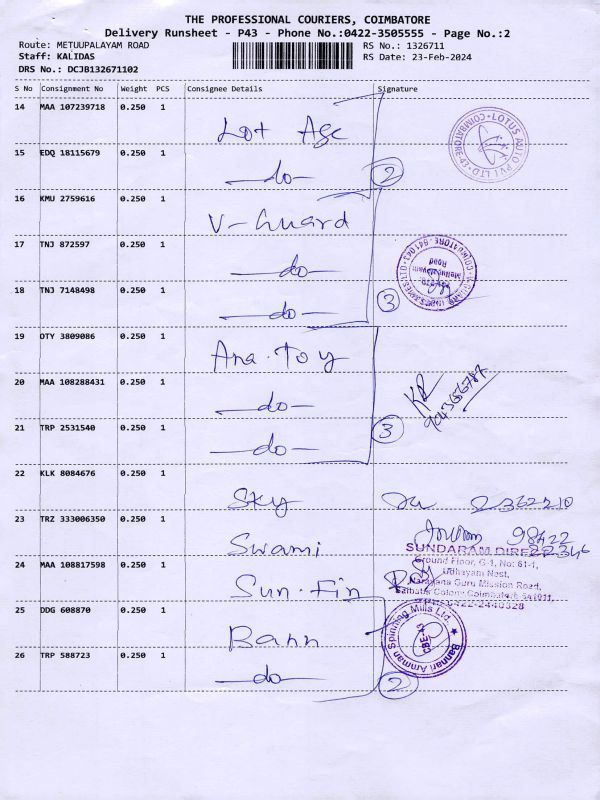 THE PROFESSIONAL COURIERS, COIMBATORE
Delivery Runsheet - P43 - Phone No.:0422-3505555 - Page No.:2
Route: METUUPALAYAM ROAD RS No.: 1326711
Staff: KALIDAS RS Date: 23-Feb-2024
DRS No.: DCJB132671102
S No Consignment No Weight PCS Consignee Details Signature
14 MAA 107239718 0.250 1 Lot Age
15 EDQ 18115679 0.250 1 —do— 2
LOTUS AUTO PVT LTD COIMBATORE-43
16 KMU 2759616 0.250 1 V-Guard
17 TNJ 872597 0.250 1 —do—
18 TNJ 7148498 0.250 1 —do— 3
Mettupalayam Road
19 OTY 3809086 0.250 1 Ana. Toy
20 MAA 108288431 0.250 1 —do—
21 TRP 2531540 0.250 1 —do— 3
22 KLK 8084676 0.250 1 Sky 2362210
23 TRZ 333006350 0.250 1 Swami 98422
22346
SUNDARAM DIRE
Ground Floor, G-1, No: 61-1,
Udhayam Nest,
Narayana Guru Mission Road,
Saibaba Colony, Coimbatore 641011.
0422-2440328
24 MAA 108817598 0.250 1 Sun. Fin
25 DDG 608870 0.250 1 Bann
26 TRP 588723 0.250 1 —do— 2
Bannari Amman Spinning Mills Ltd. CBE-43